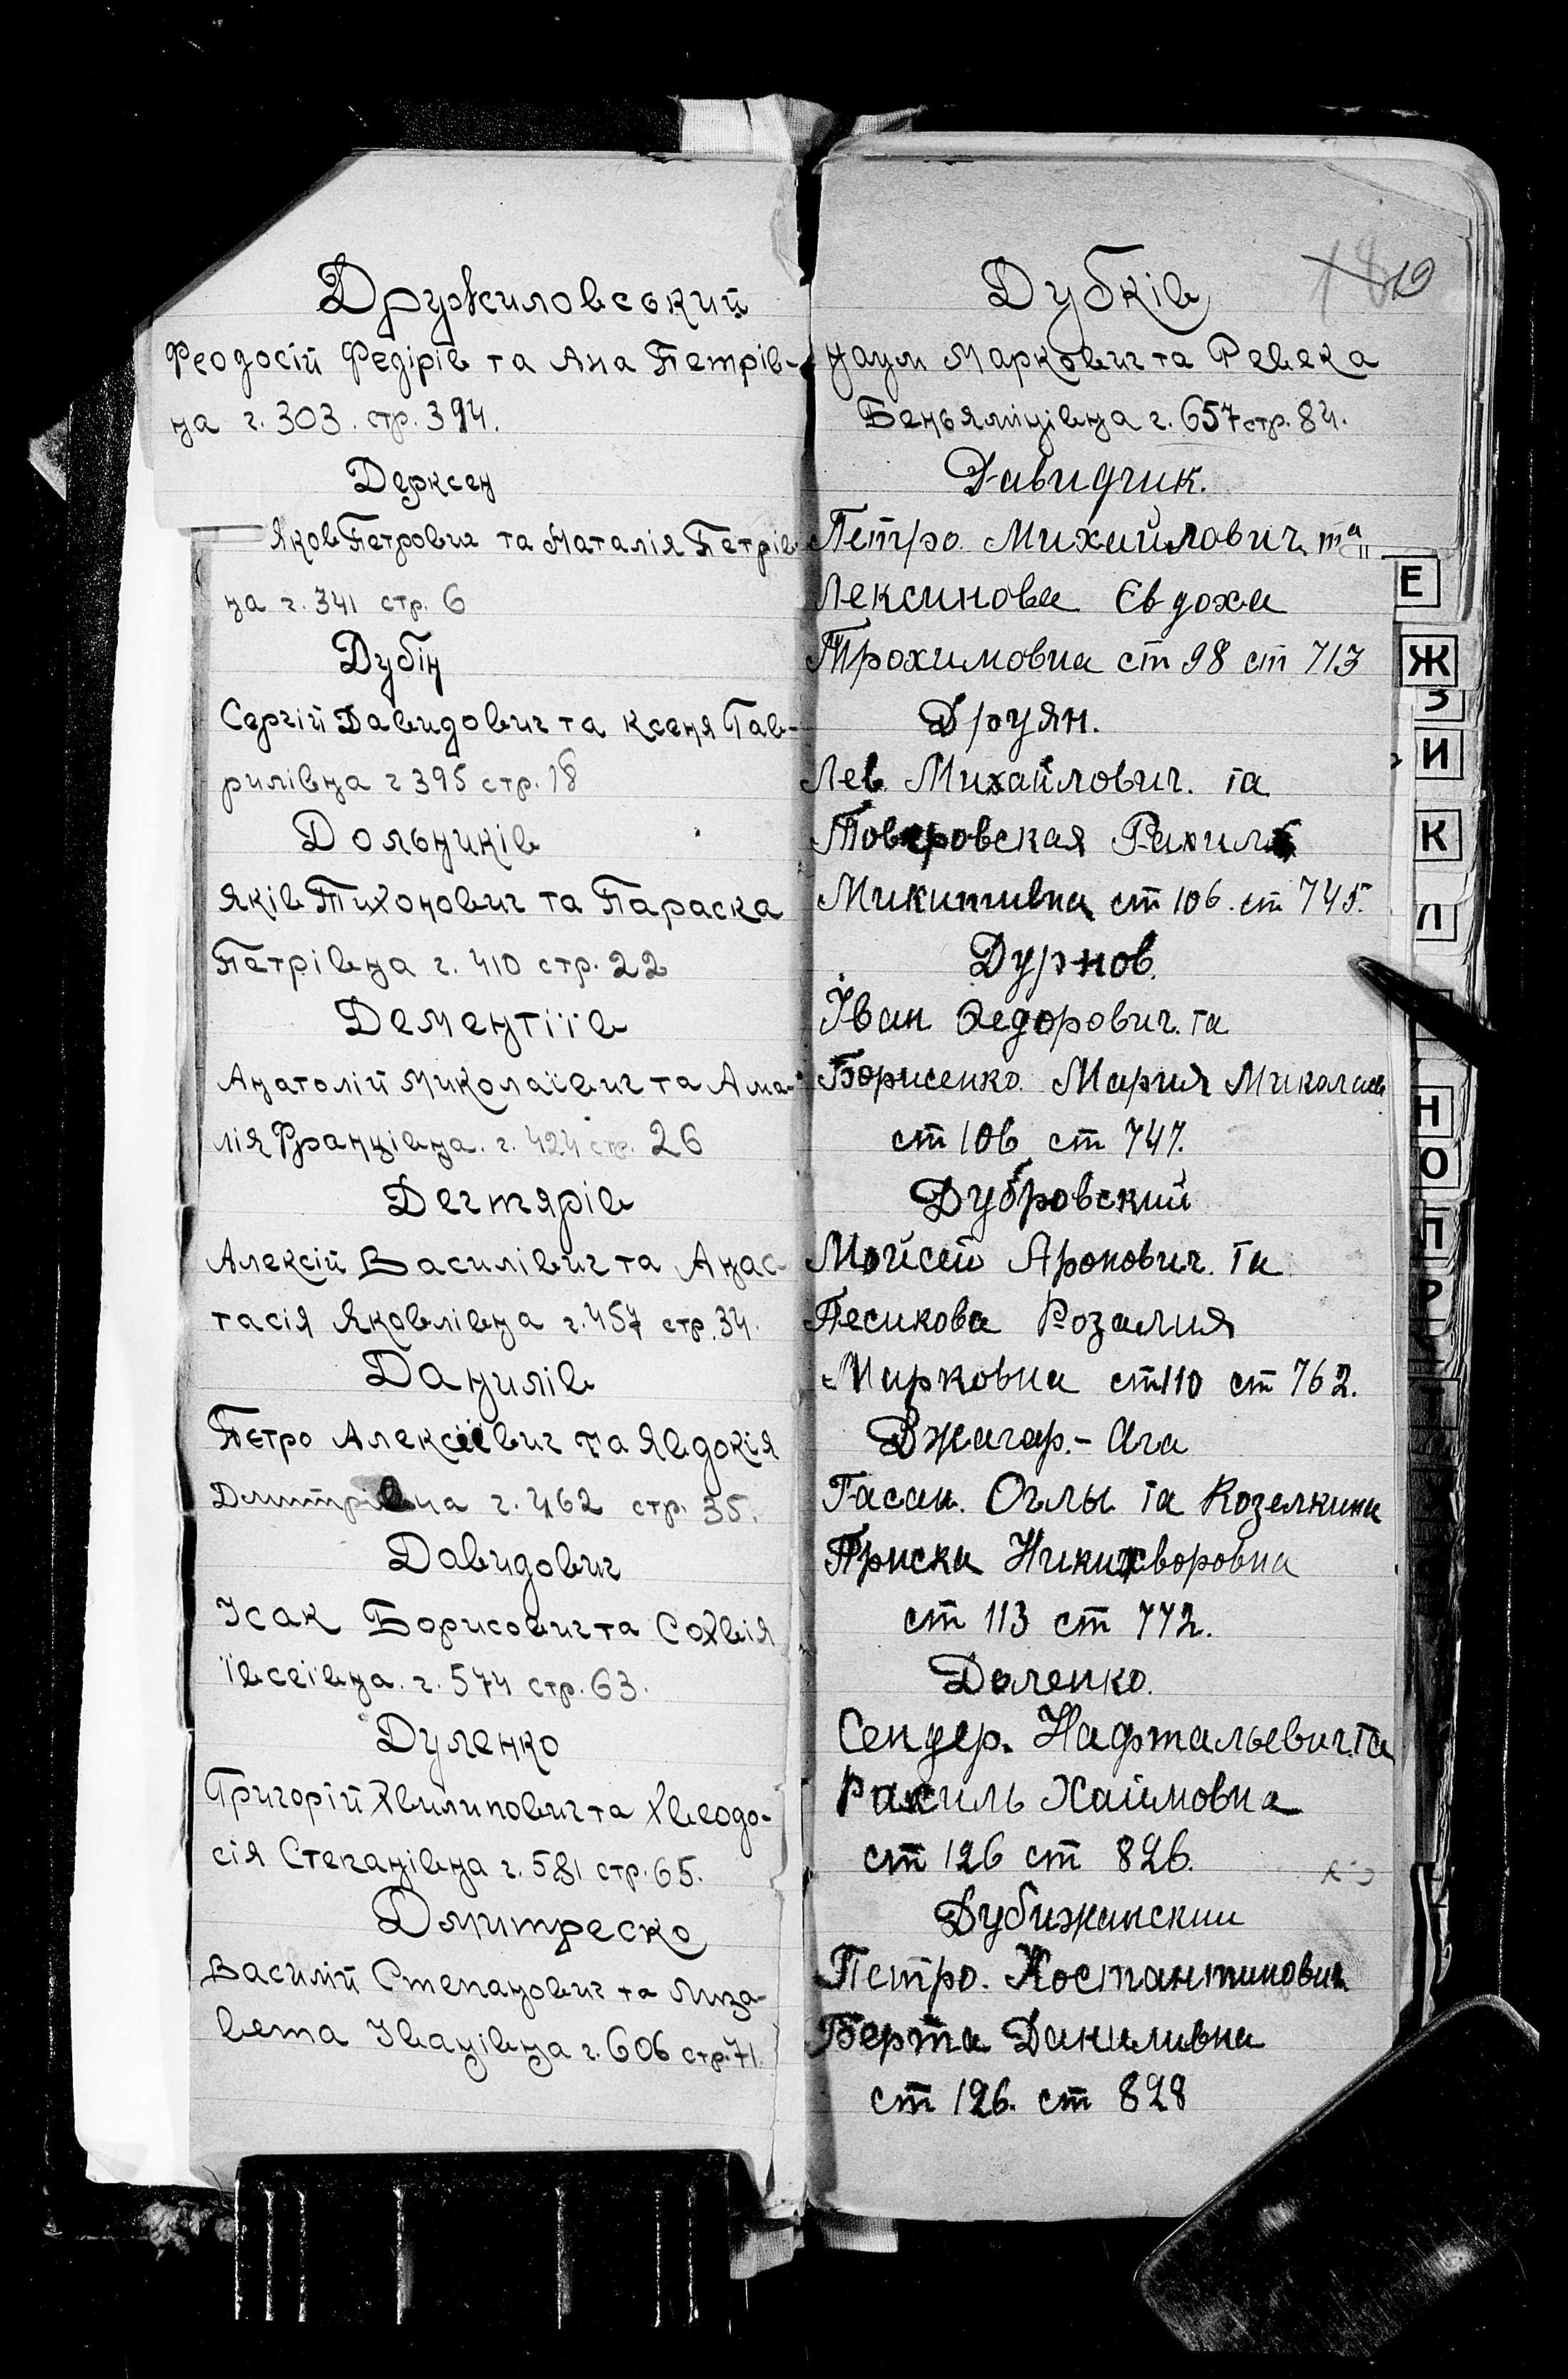 Дружиловський
Феодосій Федірів та Ана Петрів-
на г. 303. стр. 394.
Дерксен
Яков Петрович та Наталія Петрів
на г. 341 стр. 6
Дубін
Сергій Давидович та Ксеня Гав-
рилівна г 395 стр. 18
Дольників
Яків Тихонович та Параска
Петрівна г. 410 стр. 22
Дементіїв
Анатолій Миколаївич та Ама-
лія Францівна. г. 424 стр. 26
Дегтярів
Алексій Василівич та Анас-
тасія Яковлівна г. 457 стр. 34.
Данилів
Петро Алексіївич та Явдокія
Дмитрівна г. 462 стр. 35.
Давидович
Ісак Борисович та Сохвія
Ївсеївна. г. 574 стр. 63.
Дуленко
Григорій Хвилипович та Хведо-
сія Степанівна г. 581 стр. 65.
Дмитреско
Василій Степанович та Лиза-
вета Іванівна г. 606 стр. 71.
19
Дубків
Наум Маркович та Ревека
Беньямінівна г. 657 стр. 84.
Давидчик.
Петро Михайлович та
Лексинова Євдоха
Трохимовна ст 98 ст 713
Друян.
Лев Михайлович. та
Товаровская Рахиль
Микитивна ст 106. ст 745.
Дурнов.
Іван Федорович. та
Борисенко Мария Миколаев
ст 106 ст 747.
Дубровский
Мойсей Аронович. та
Песикова Розалия
Марковна ст 110 ст 762.
Джагар.- Ага
Гасан. Оглы та Козелкина
Приска Никихворовна
ст 113 ст 772.
Доленко.
Сендер. Нафтальевич. та
Рахиль Хаймовна
ст 126 ст 826.
Дубижанский
Петро. Костантинович
Берта Даниливна
ст 126. ст 828
Е
Ж
З
И
К
Л
Н
О
П
Р
Т